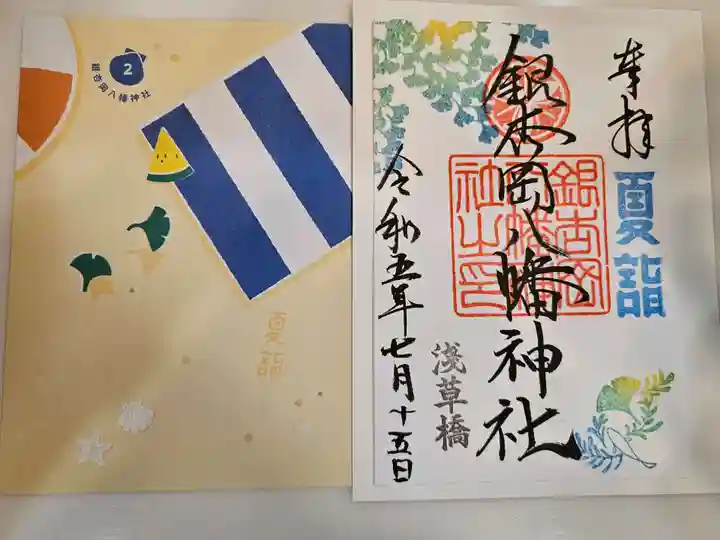 2
銀杏岡八幡神社
夏詣
奉拝
夏詣
銀杏岡八幡神社
浅草橋
令和五年七月十五日